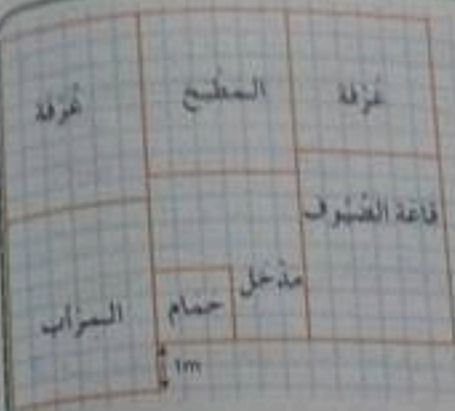 غرفة
المطبخ
غرفة
قاعة الضيوف
مدخل
حمام
المرآب
1m